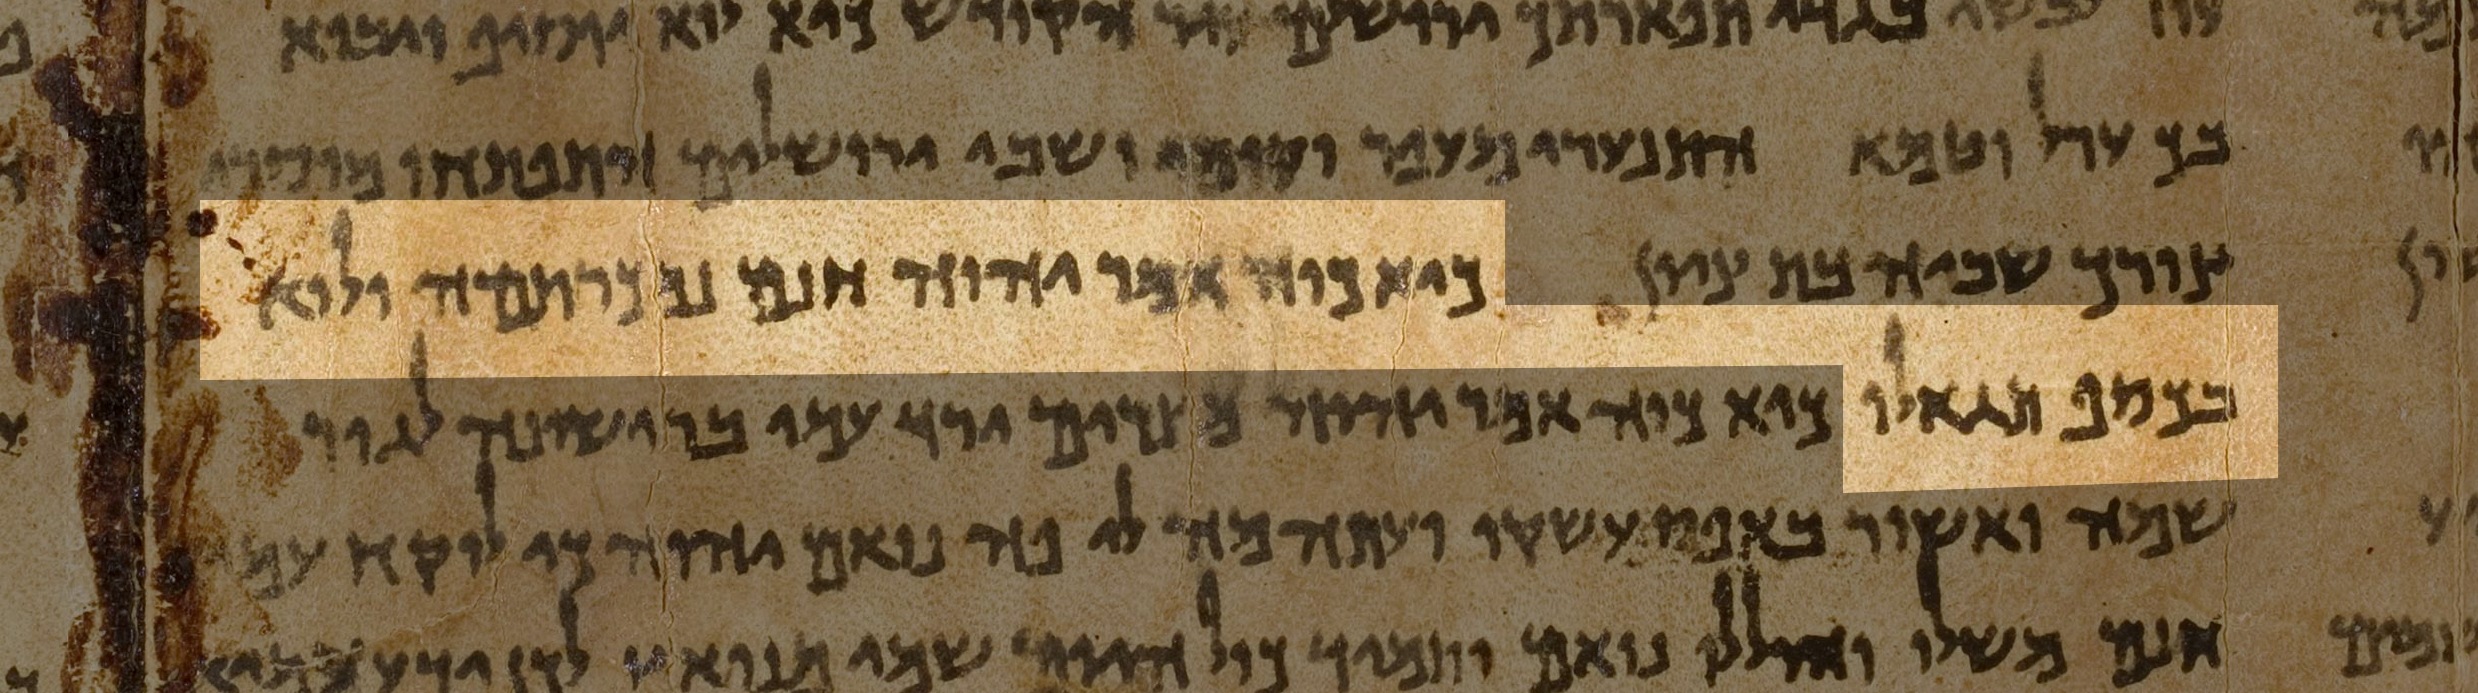 עוז לבשי בגדי תפארתך ירושלים עיר הקודש כיא לוא יוסיף ויבוא
בך ערל וטמא התנערי מעפר וקומי ושבי ירושלים התפתחו מוסרי
צורך שביה בת ציון כיא כוה אמר יהוה חנם נמכרתמה ולוא
בכסף תגאלו כיא כוה אמר יהוה מצרים ירד עמי ברישונה לגור
שמה ואשור באפס עשקו ועתה מה לי פה נואם יהוה כי לוקח עמי
חנם משלו נואם ותמיד כול היום שמי מנואץ לכן ידע